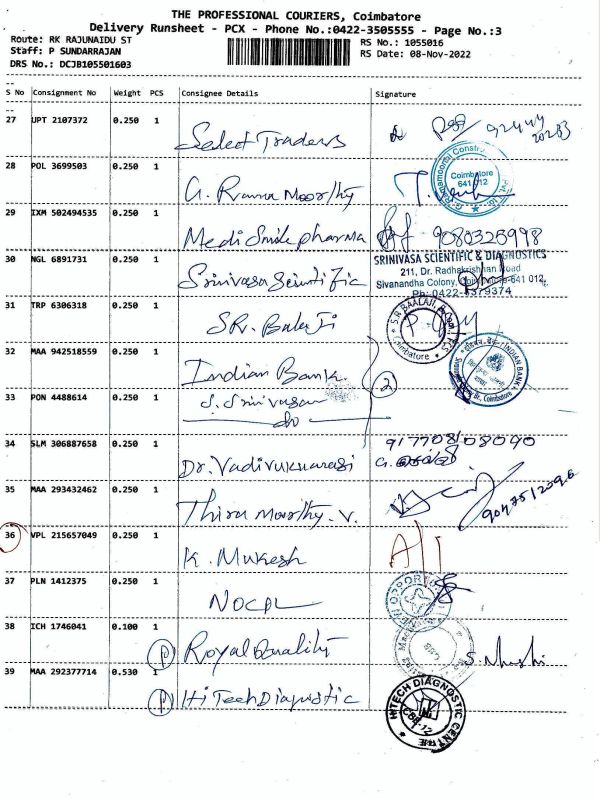 THE PROFESSIONAL COURIERS, Coimbatore
Delivery Runsheet - PCX - Phone No.:0422-3505555 - Page No.:3
Route: RK RAJUNAIDU ST
RS No.: 1055016
Staff: P SUNDARRAJAN
RS Date: 08-Nov-2022
DRS No.: DCJB105501603
S No Consignment No Weight PCS Consignee Details Signature
27 UPT 2107372 0.250 1 Select Traders
28 POL 3699503 0.250 1 G. Rama Moorthy
Coimbatore
641 012
29 IXM 502494535 0.250 1 Medi Smile pharma 9080325998
30 NGL 6891731 0.250 1 Srinivasa Scientific
SRINIVASA SCIENTIFIC & DIAGNOSTICS
211, Dr. Radhakrishnan Road
Sivanandha Colony, Coimbatore-641 012.
Ph: 0422-4379374
31 TRP 6306318 0.250 1 SR. Balaji
S.R BAALAJI, B.Com., FCS
Coimbatore
32 MAA 942518559 0.250 1 Indian Bank 2
INDIAN BANK
Coimbatore
33 PON 4488614 0.250 1 S. Srinivasan
do
34 SLM 306887658 0.250 1 Dr. Vadivukkarasi
917708108090
35 MAA 293432462 0.250 1 Thiru Moorthy. V.
36 VPL 215657049 0.250 1 K. Mukesh
37 PLN 1412375 0.250 1 NOCPL
38 ICH 1746041 0.100 1 P Royal Quality
39 MAA 292377714 0.530 1 P Hi Tech Diagnostic
HITECH DIAGNOSTIC CENTRE
CBE-12